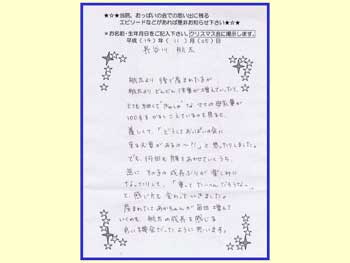 ★☆★当院、おっぱいの会での思い出に残る
エピソードなどがあれば是非お知らせ下さい★☆★
＊お名前・生年月日をご記入下さい。クリスマス会に掲示します。
平成(19)年(11)月(05)日
長谷川 航太
航太より後で産まれた子が
航太よりどんどん体重が増えていたり、
とても細くて"きゃしゃ"なママの母乳量が
100gをかるくこえているのを見ると、
羨しくて「どうしておっぱいの会に
来る必要があるの〜!!」と思ったりしました。
でも、何回も顔をあわせていくうち、
逆にその子の成長ぶりが楽しみに
なったりして、「重ってたいへんだろうな〜」
と感じ方も変わっていきました。
産まれたてあかちゃんが毎回増えて
いくのも、航太の成長を感じる
良い機会だったように思います。